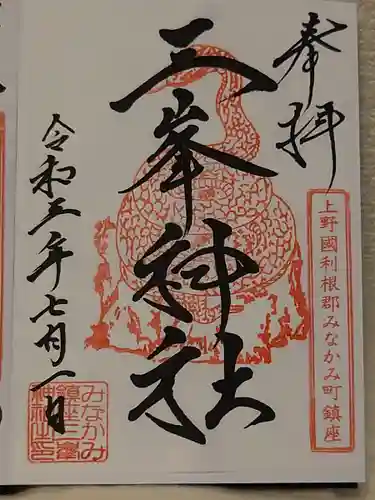 奉拝
上野國利根郡みなかみ町鎮座
三峯神社
令和五年七月一日
みなかみ
鎮座三峯
神社之印